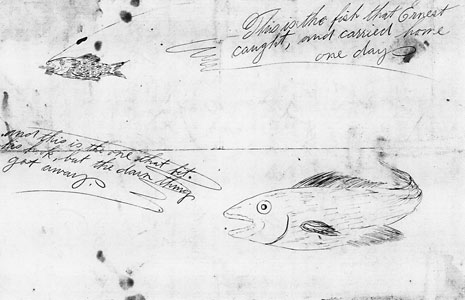 This is the fish that Ernest
caught, and carried home
one day.
and this is the one that bit
his hook but the darn thing
got away.